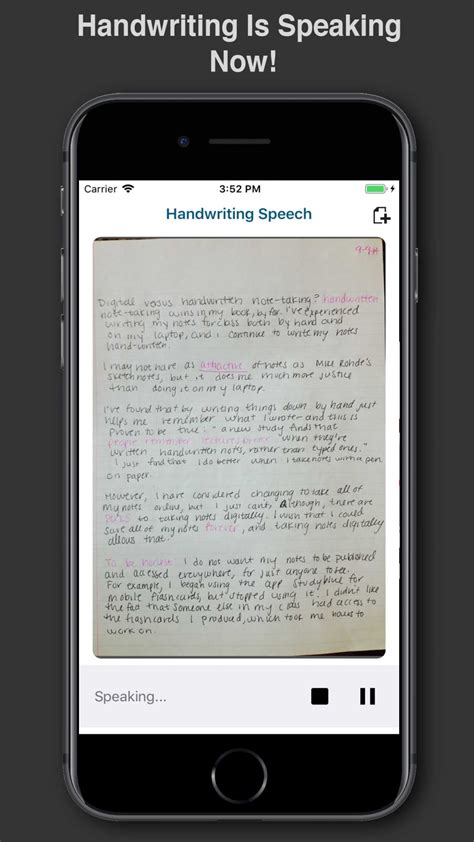 Handwriting Is Speaking
Now!
Carrier
3:52 PM
Handwriting Speech
9-9-14
Digital versus handwritten note-taking? handwritten
note-taking wins in my book, by far. I've experienced
writing my notes for class both by hand and
on my laptop, and i continue to write my notes
hand-written.
I may not have as attractive of notes as Mike Rohde's
sketchnotes, but it does me much more justice
than doing it on my laptop.
I've found that by writing things down by hand just
helps me remember what I wrote- and this is
proven to be true: "a new study finds that
people remember lectures better when they're
written handwritten notes, rather than typed ones."
I just find that I do better when I take notes with a pen
on paper.
However, I have considered changing to take all of
my notes online, but I just can't, although, there are
PROS to taking notes digitally. I wish that I could
save all of my notes forever, and taking notes digitally
allows that.
To be honest I do not want my notes to be published
and accessed everywhere, for just anyone to see.
For example, I began using the app studyblue for
mobile flashcards, but stopped using it. I didn't like
the fact that someone else in my class had access to
the flashcards I produced, which took me hours to
work on.
Speaking...